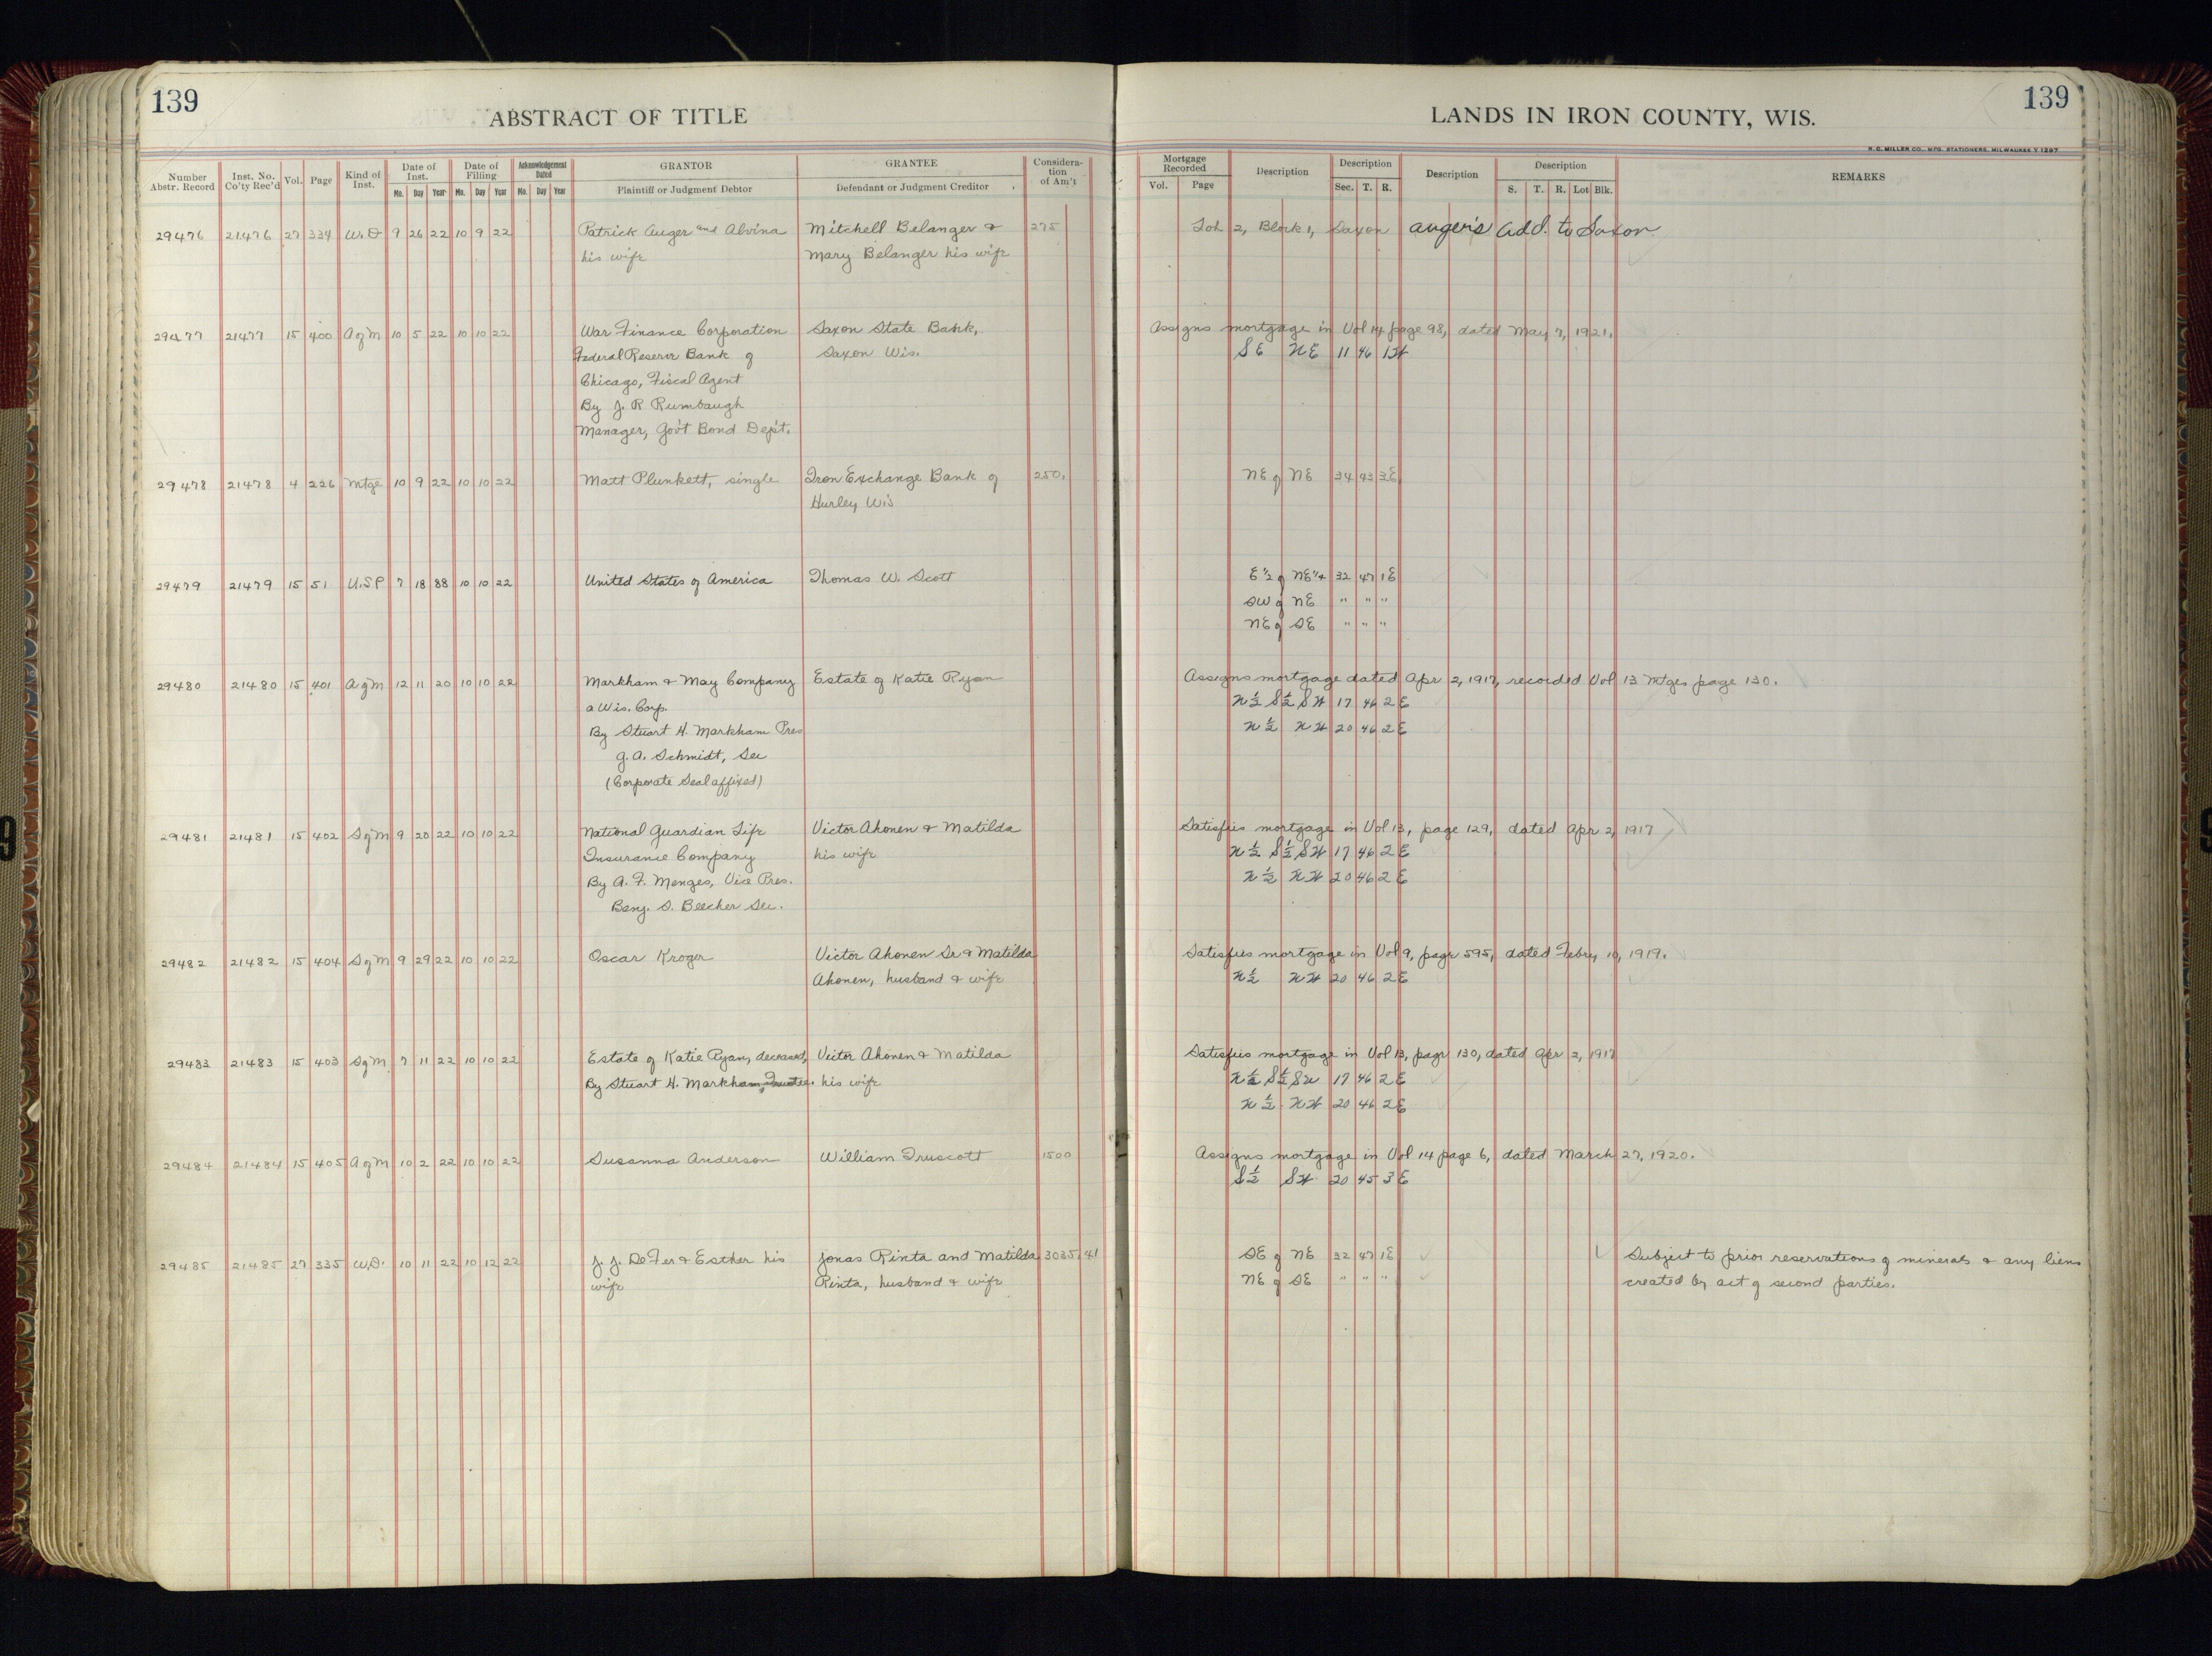 139
ABSTRACT OF TITLE
LANDS IN IRON COUNTY, WIS.
139
R. C. MILLER CO., MFG. STATIONERS, MILWAUKEE
Number Abstr. Record
Inst. No. Co'ty Rec'd
Vol.
Page
Kind of Inst.
Date of Inst.
Mo. Day Year
Date of Filling
Mo. Day Year
Acknowledgement Dated
Mo. Day Year
GRANTOR
Plaintiff or Judgment Debtor
GRANTEE
Defendant or Judgment Creditor
Considera-
tion
of Am't
Mortgage Recorded
Vol. Page
Description
Description
Sec. T. R.
Description
Description
S. T. R. Lot Blk.
REMARKS
29476 21476 27 334 W.D 9 26 22 10 9 22 Patrick Auger and Alvina Mitchell Belanger & 275 Lot 2, Block 1, Saxon Auger's Add. to Saxon
his wife Mary Belanger his wife
29477 21477 15 400 A of M 10 5 22 10 10 22 War Finance Corporation Saxon State Bank, Assigns mortgage in Vol 14 page 98, dated May 7, 1921.
Federal Reserve Bank of Saxon Wis. SE NE 11 46 1W
Chicago, Fiscal Agent
By J. R. Rumbaugh
Manager, Gov't Bond Dep't.
29478 21478 4 226 Mtge 10 9 22 10 10 22 Matt Plunkett, single Iron Exchange Bank of 250. NE of NE 34 43 3E
Hurley Wis
29479 21479 15 51 U.S.P 7 18 88 10 10 22 United States of America Thomas W. Scott E 1/2 of NE 1/4 32 47 1E
SW of NE " " "
NE of SE " " "
29480 21480 15 401 A of M 12 11 20 10 10 22 Markham & May Company Estate of Katie Ryan Assigns mortgage dated Apr 2, 1917, recorded Vol 13 Mtges page 130.
a Wis. Corp. N 1/2 S 1/2 SW 17 46 2 E
By Stuart H. Markham Pres N 1/2 NW 20 46 2 E
G. A. Schmidt, Sec
(Corporate Seal affixed)
29481 21481 15 402 S of M 9 20 22 10 10 22 National Guardian Life Victor Ahonen & Matilda Satisfies mortgage in Vol 13, page 129, dated Apr 2, 1917
Insurance Company his wife N 1/2 S 1/2 SW 17 46 2 E
By A. F. Menges, Vice Pres. N 1/2 NW 20 46 2 E
Benj. S. Beecher Sec.
29482 21482 15 404 S of M 9 29 22 10 10 22 Oscar Kroger Victor Ahonen Sr & Matilda Satisfies mortgage in Vol 9, page 595, dated Febry 10, 1919.
Ahonen, husband & wife N 1/2 NW 20 46 2 E
29483 21483 15 403 S of M 7 11 22 10 10 22 Estate of Katie Ryan, deceased, Victor Ahonen & Matilda Satisfies mortgage in Vol 13, page 130, dated Apr 2, 1917
By Stuart H. Markham, Trustee. his wife N 1/2 S 1/2 SW 17 46 2 E
N 1/2 NW 20 46 2 E
29484 21484 15 405 A of M 10 2 22 10 10 22 Susanna Anderson William Truscott 1500 Assigns mortgage in Vol 14 page 6, dated March 27, 1920.
S 1/2 SW 20 45 3 E
29485 21485 27 335 W.D. 10 11 22 10 12 22 J. J. DeFer & Esther his Jonas Rinta and Matilda 3035.41 SE of NE 32 47 1E Subject to prior reservations of minerals & any liens
wife Rinta, husband & wife NE of SE " " " created by act of second parties.